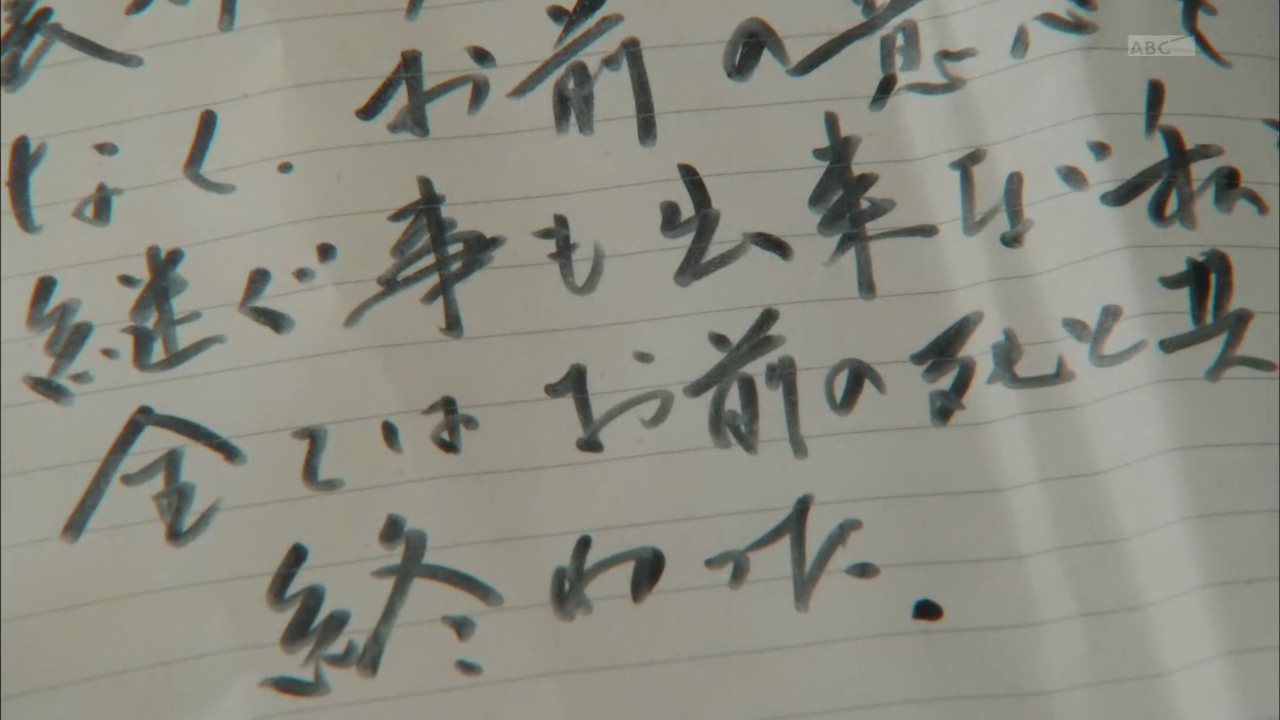 ABC
お前の意志を
なく、
継ぐ事も出来なば私
全てはお前の死と共
終わった.